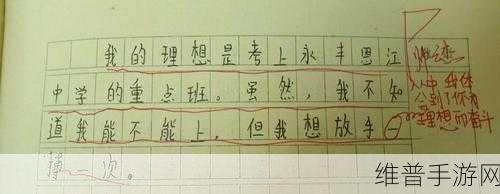 我的理想是考上永丰恩江
中学的重点班。虽然，我不知
道我能不能上，但我想放手一
搏一次。
从中我体
会到了你为
理想而奋斗
维普手游网